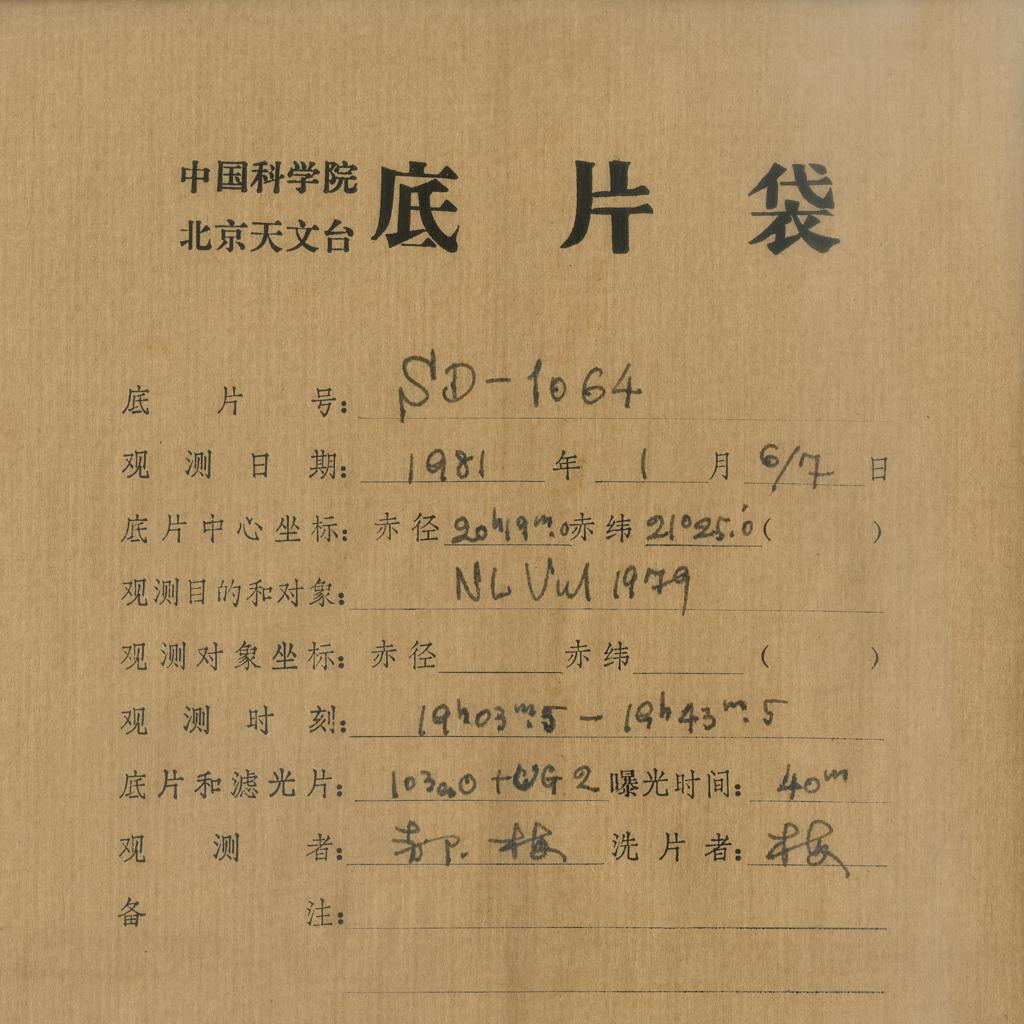 中国科学院
北京天文台
底片袋
底片号：SD-1064
观测日期：1981年1月6/7日
底片中心坐标：赤径20h19m.0赤纬21°25.'0(　　)
观测目的和对象：NL Vul 1979
观测对象坐标：赤径　　赤纬　　(　　)
观测时刻：19h03m.5 - 19h43m.5
底片和滤光片：103aO+UG2 曝光时间：40m
观测者：郝 梅 洗片者：梅
备注：